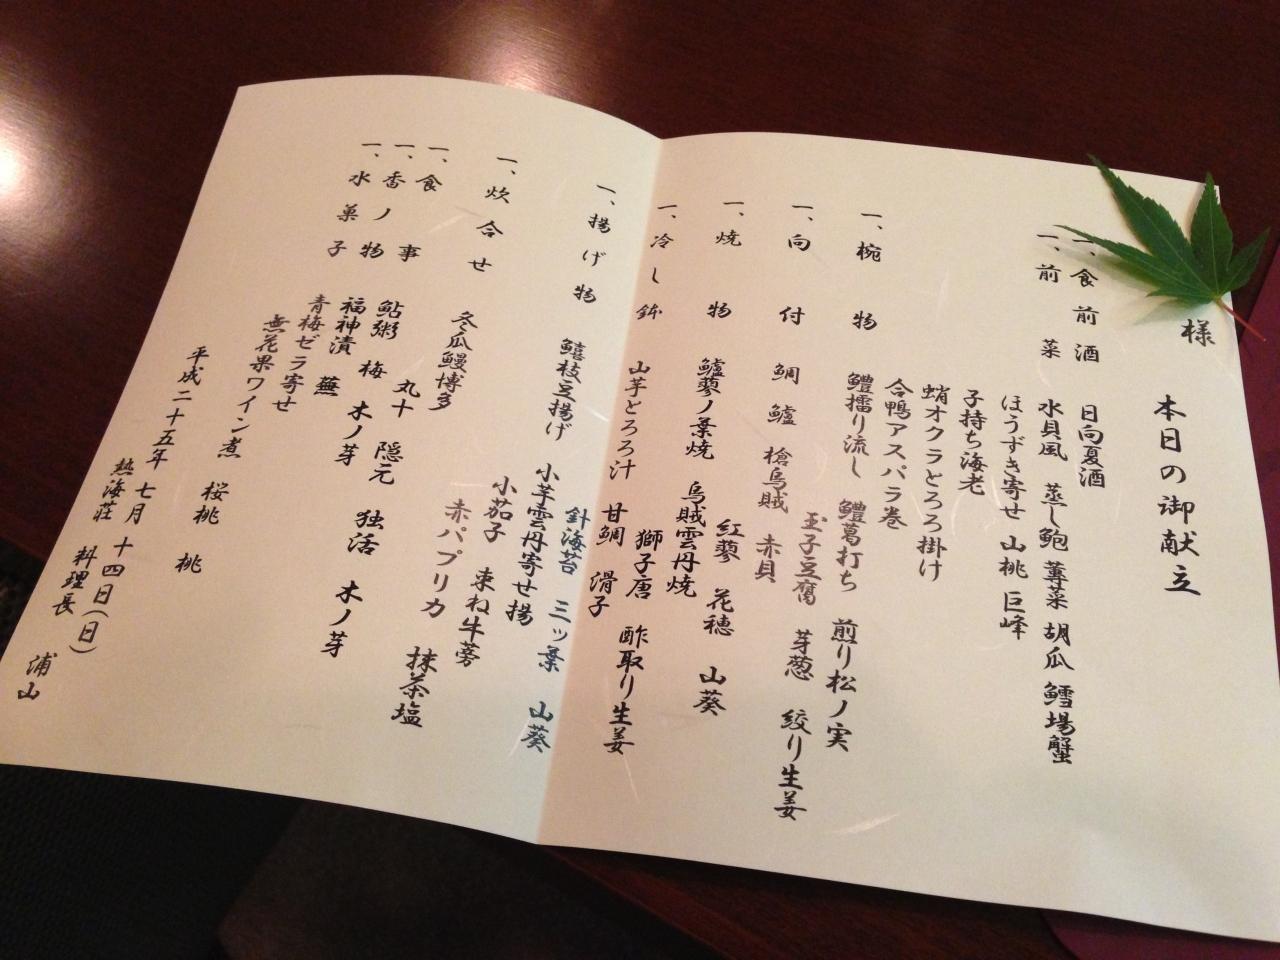 様
本日の御献立
一、食前酒 日向夏酒
一、前菜 水貝風 蒸し鮑 蓴菜 胡瓜 鱈場蟹
ほうずき寄せ 山桃 巨峰
子持ち海老
蛸オクラとろろ掛け
合鴨アスパラ巻
一、椀物 鱧擂り流し 鱧葛打ち 煎り松ノ実
玉子豆腐 芽葱 絞り生姜
一、向付 鯛 鱸 槍烏賊 赤貝
一、焼物 鱸蓼ノ葉焼 紅蓼 花穂 山葵
烏賊雲丹焼
獅子唐 酢取り生姜
一、冷し鉢 山芋とろろ汁 甘鯛 滑子
針海苔 三ッ葉 山葵
一、揚げ物 鱚枝豆揚げ 小芋雲丹寄せ揚
小茄子 束ね牛蒡
赤パプリカ 抹茶塩
一、炊合せ 冬瓜鰻博多
丸十 隠元 独活 木ノ芽
一、食事 鮎粥 梅 木ノ芽
一、香ノ物 福神漬 蕪
一、水菓子 青梅ゼラ寄せ
無花果ワイン煮
桜桃 桃
平成二十五年 七月 十四日(日)
熱海荘 料理長 浦山